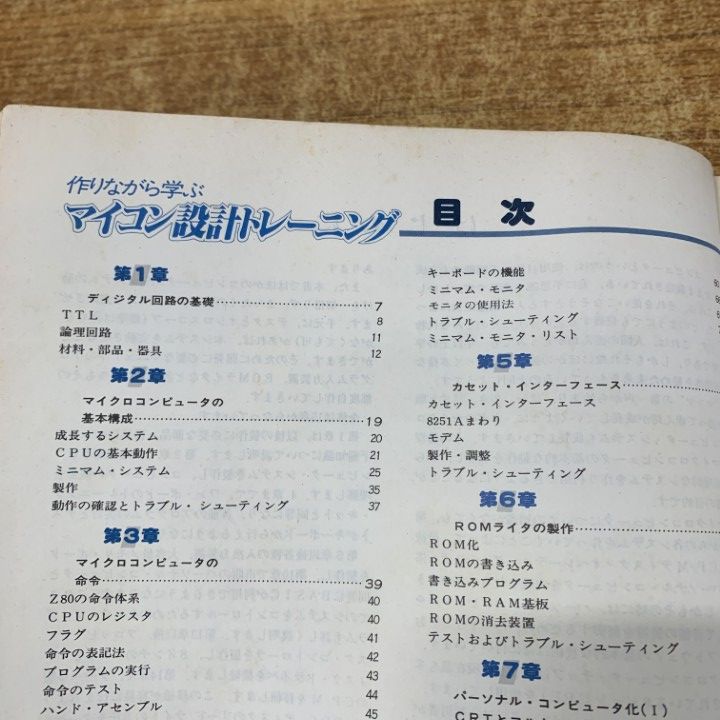 作りながら学ぶ
マイコン設計トレーニング
目次
第1章
ディジタル回路の基礎……………………7
TTL 8
論理回路 11
材料・部品・器具 12
第2章
マイクロコンピュータの
基本構成……………………………19
成長するシステム 20
CPUの基本動作 21
ミニマム・システム 25
製作 35
動作の確認とトラブル・シューティング 37
第3章
マイクロコンピュータの
命令……………………………39
Z80の命令体系 40
CPUのレジスタ 40
フラグ 41
命令の表記法 42
プログラムの実行 43
命令のテスト 44
ハンド・アセンブル 45
キーボードの機能
ミニマム・モニタ
モニタの使用法
トラブル・シューティング
ミニマム・モニタ・リスト
第5章
カセット・インターフェース……………
カセット・インターフェース
8251Aまわり
モデム
製作・調整
トラブル・シューティング
第6章
ROMライタの製作……………………
ROM化
ROMの書き込み
書き込みプログラム
ROM・RAM基板
ROMの消去装置
テストおよびトラブル・シューティング
第7章
パーソナル・コンピュータ化(I)